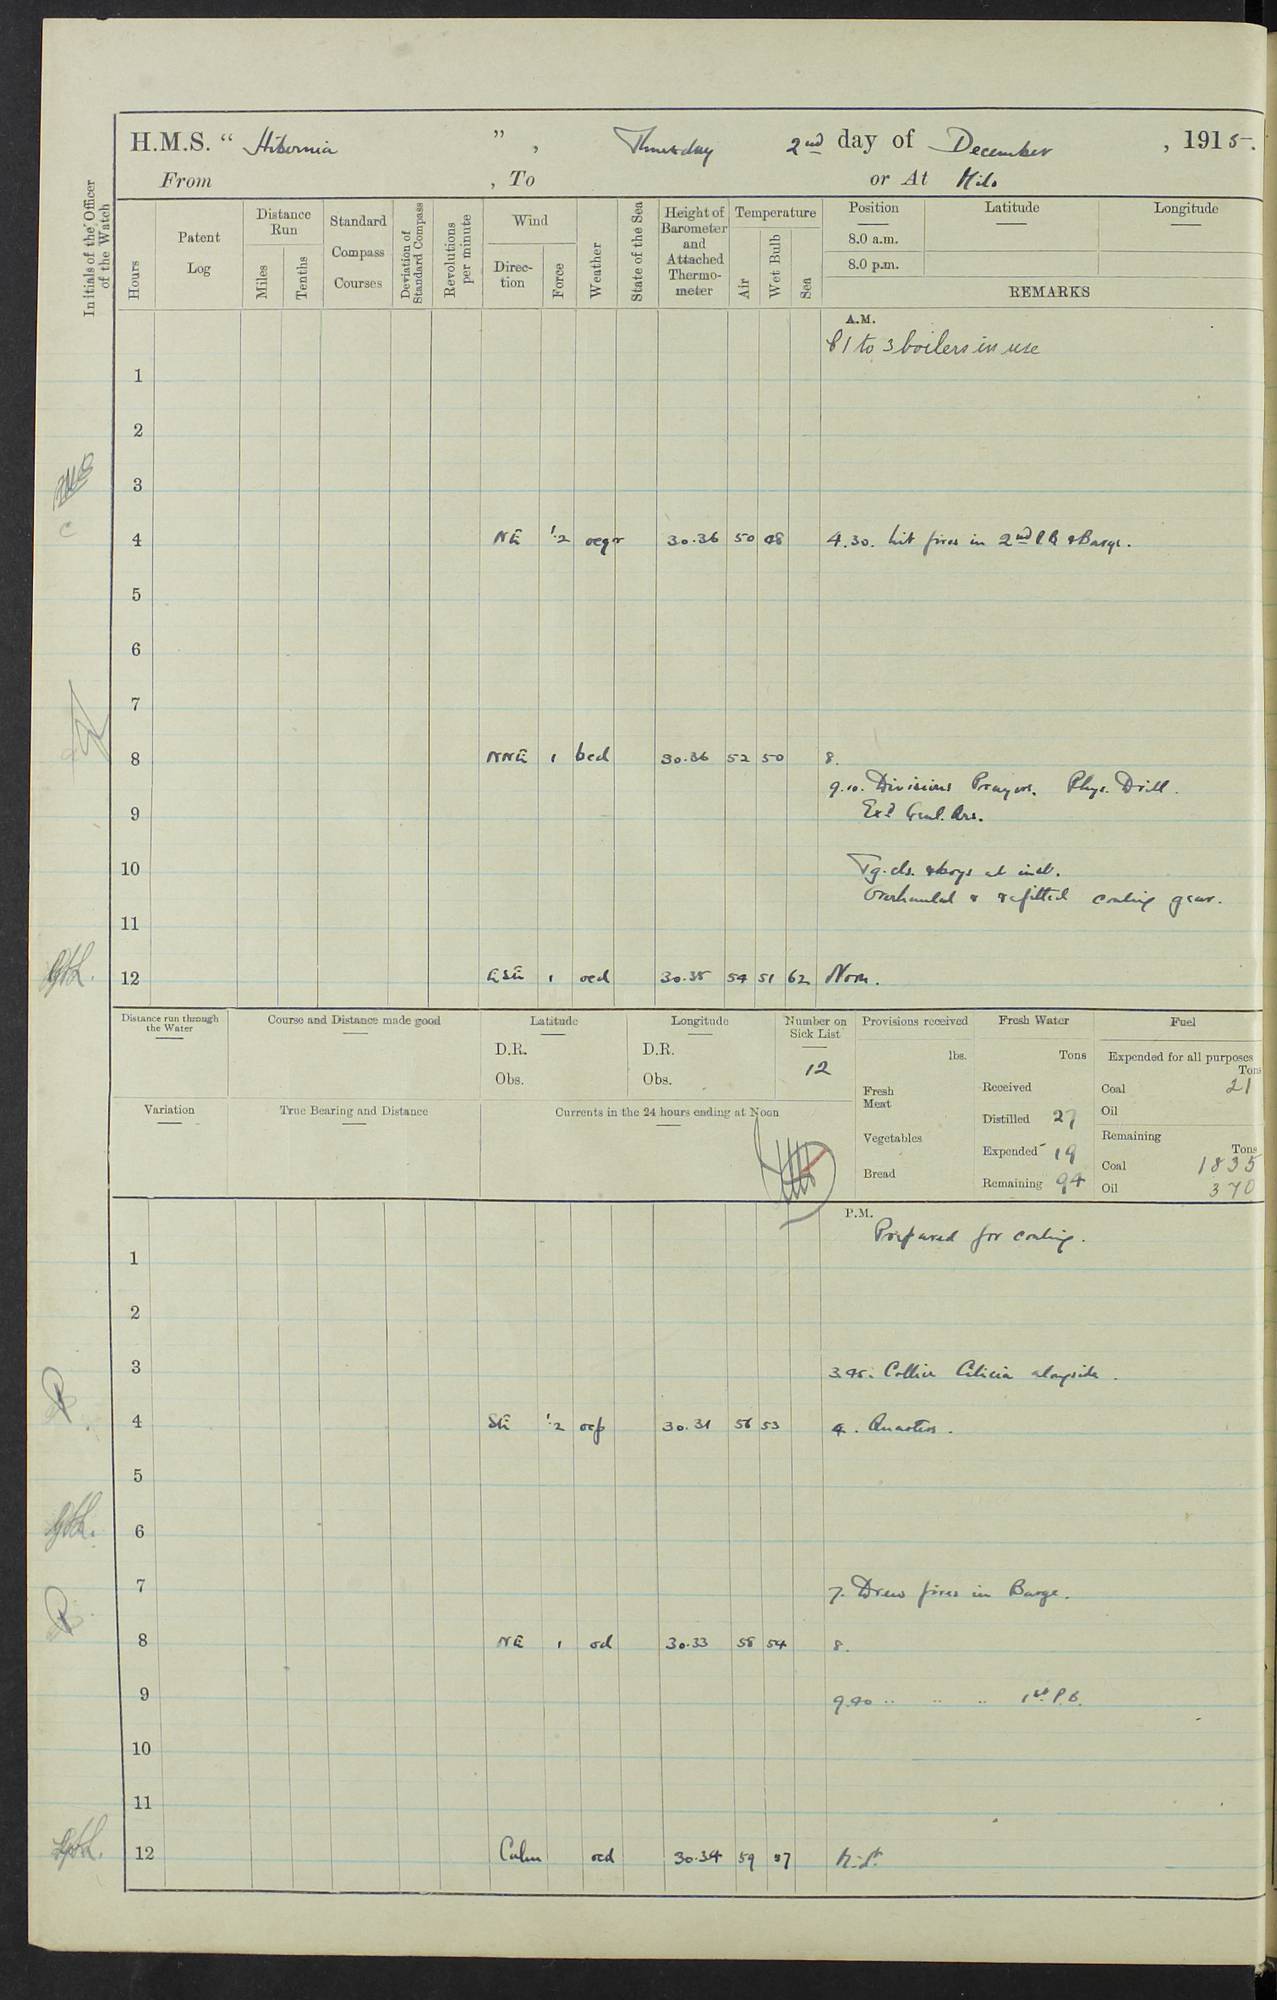 H.M.S. “ Hibernia ” , Thursday 2nd day of December , 1915.
From , To or At Kilo
Initials of the Officer of the Watch
Hours
Patent Log
Distance Run
Miles
Tenths
Standard Compass Courses
Deviation of Standard Compass
Revolutions per minute
Wind
Direc-tion
Force
Weather
State of the Sea
Height of Barometer and Attached Thermo-meter
Temperature
Air
Wet Bulb
Sea
Position
Latitude
Longitude
8.0 a.m.
8.0 p.m.
REMARKS
A.M.
1 to 3 boilers in use
1
2
3
4 NE 1.2 30.36 50 48 4.30. Lit fires in 2nd P.B. & Barge.
5
6
7
8 NNE 1 bcd 30.36 52 50 8.
9.10. Divisions Prayers. Phys. Drill.
9
10 Tg. cls. & boys at inst.
Overhauled & refitted coaling gear.
11
12 ESE 1 ocd 30.35 54 51 62 Noon.
Distance run through the Water
Course and Distance made good
Latitude
D.R.
Obs.
Longitude
D.R.
Obs.
Number on Sick List
12
Provisions received
lbs.
Fresh Meat
Vegetables
Bread
Fresh Water
Tons
Received
Distilled 27
Expended 19
Remaining 94
Fuel
Expended for all purposes
Tons
Coal 21
Oil
Remaining
Tons
Coal 1835
Oil 370
Variation
True Bearing and Distance
Currents in the 24 hours ending at Noon
P.M.
Prepared for coaling.
1
2
3 3.45. Collier Cilicia alongside.
4 SE 1.2 ocp 30.31 56 53 4. Quarters.
5
6
7 7. Drew fires in Barge.
8 NE 1 od 30.33 58 54 8.
9 9.40 " " " 1st P.B.
10
11
12 Calm ocd 30.34 59 57